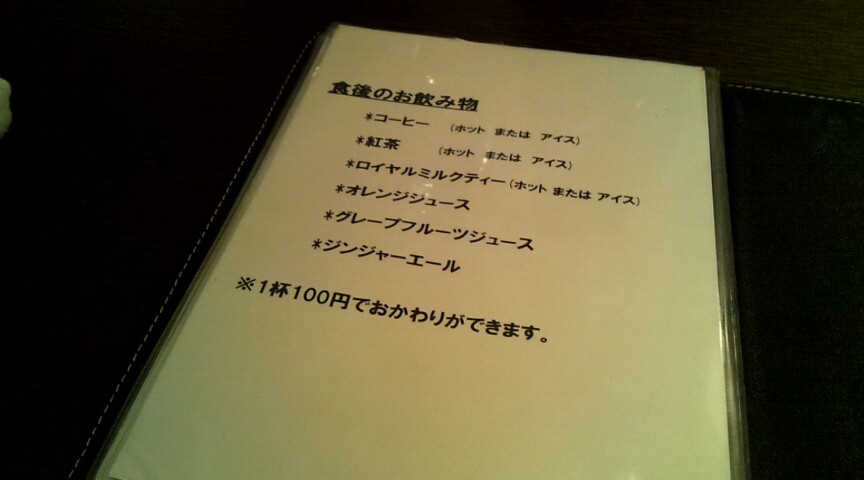 食後のお飲み物
*コーヒー (ホット または アイス)
*紅茶 (ホット または アイス)
*ロイヤルミルクティー(ホット または アイス)
*オレンジジュース
*グレープフルーツジュース
*ジンジャーエール
※1杯100円でおかわりができます。